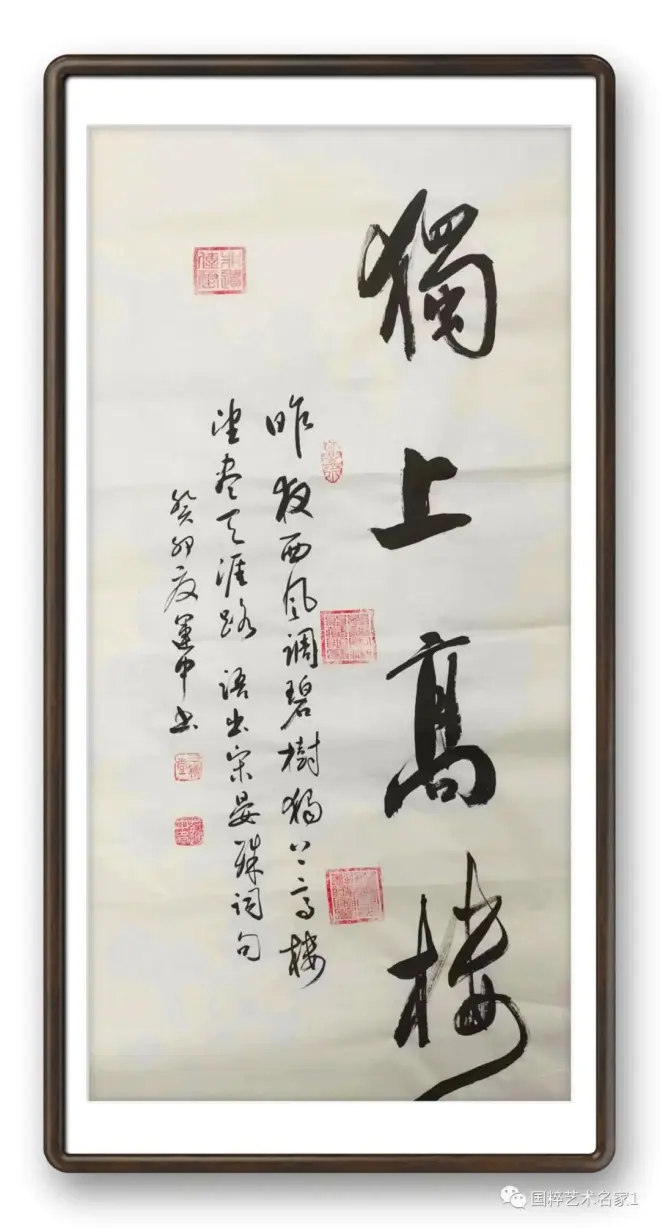 獨上高樓
昨夜西風調碧樹獨上高樓
望盡天涯路 語出宋晏殊詞句
癸卯夏運中書
国粹艺术名家1